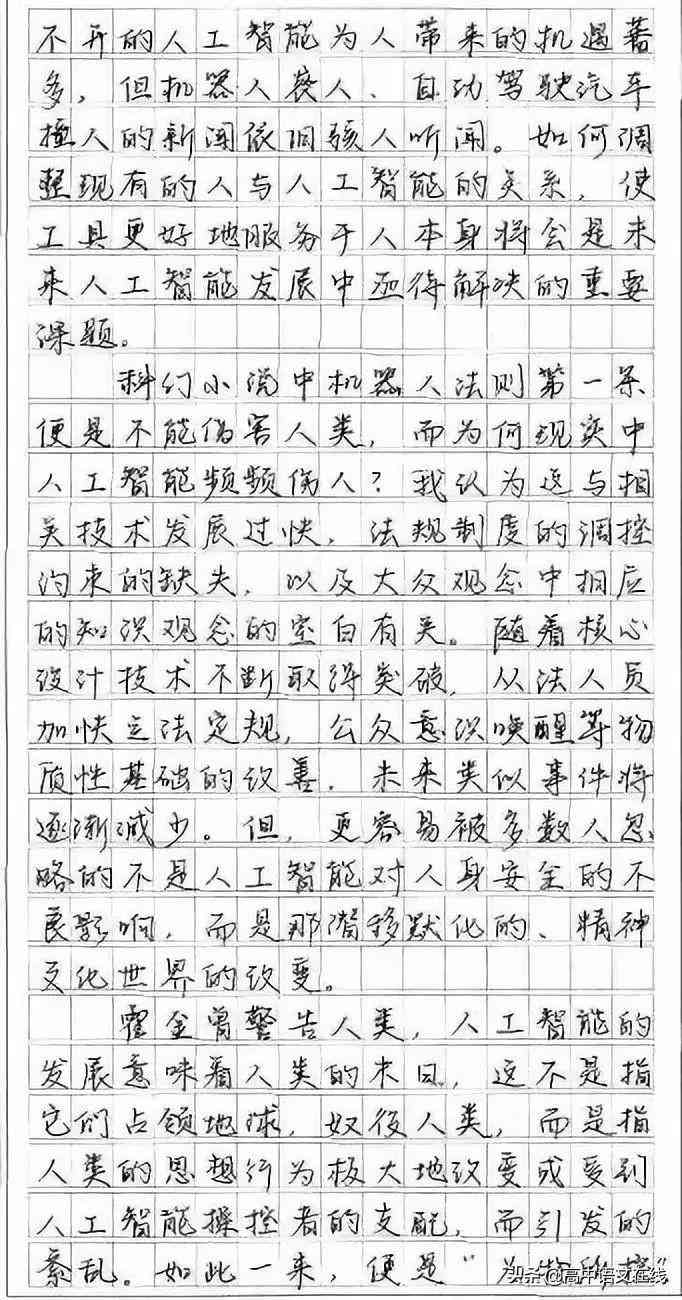 不开的人工智能为人带来的机遇蕃
多，但机器人丧人、自动驾驶汽车
撞人的新闻依旧骇人听闻。如何调
整现有的人与人工智能的关系，使
工具更好地服务于人本身将会是未
来人工智能发展中亟待解决的重要
课题。
科幻小说中机器人法则第一条
便是不能伤害人类，而为何现实中
人工智能频频伤人？我认为这与相
关技术发展过快，法规制度的调控
约束的缺失，以及大众观念中相应
的知识观念的空白有关。随着核心
设计技术不断取得突破，从法人员
加快立法定规，公众意识唤醒等物
质性基础的改善，未来类似事件将
逐渐减少。但，更容易被多数人忽
略的不是人工智能对人身安全的不
良影响，而是那潜移默化的、精神
文化世界的改变。
霍金曾警告人类，人工智能的
发展意味着人类的末日，这不是指
它们占领地球，奴役人类，而是指
人类的思想行为极大地改变或受到
人工智能操控者的支配，而引发的
紊乱。如此一来，便是“为物所
头条@高中语文在线